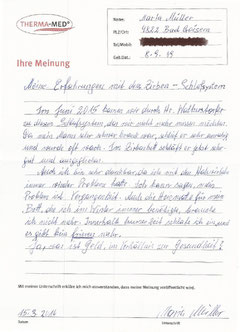 THERMA-MED®
Name: Maria Müller
PLZ/Ort: 4822 Bad Goisern
Tel/Mobil:
Geb.Dat.: 8.9.49
Ihre Meinung
Meine Erfahrungen mit der Zirben-Schlafsystem
Im Juni 2015 kamen wir durch Hr.
zu diesem Schlafsystem, das wir nicht mehr missen möchten.
Da mein Mann sehr schwer krank war, schlief er sehr unruhig
und wurde oft wach. Im Zirbenbett schläft er jetzt sehr
gut und ausgiebiger.
Auch ich bin sehr dankbar, da ich mit der
immer wieder Probleme hatte. Ich kann sagen, mein
Problem ist Vergangenheit, auch die für mein
Bett, die ich im Winter immer benötigte, brauche
ich nicht mehr. Innerhalb kurzer Zeit schlafe ich ein und
es gibt kein frieren mehr.
Ja, was ist Geld, im Verhältnis zur Gesundheit?
Mit meiner Unterschrift erkläre ich mich einverstanden, dass meine Meinung veröffentlicht wird.
15.3.2016
Maria Müller
Datum
Unterschrift